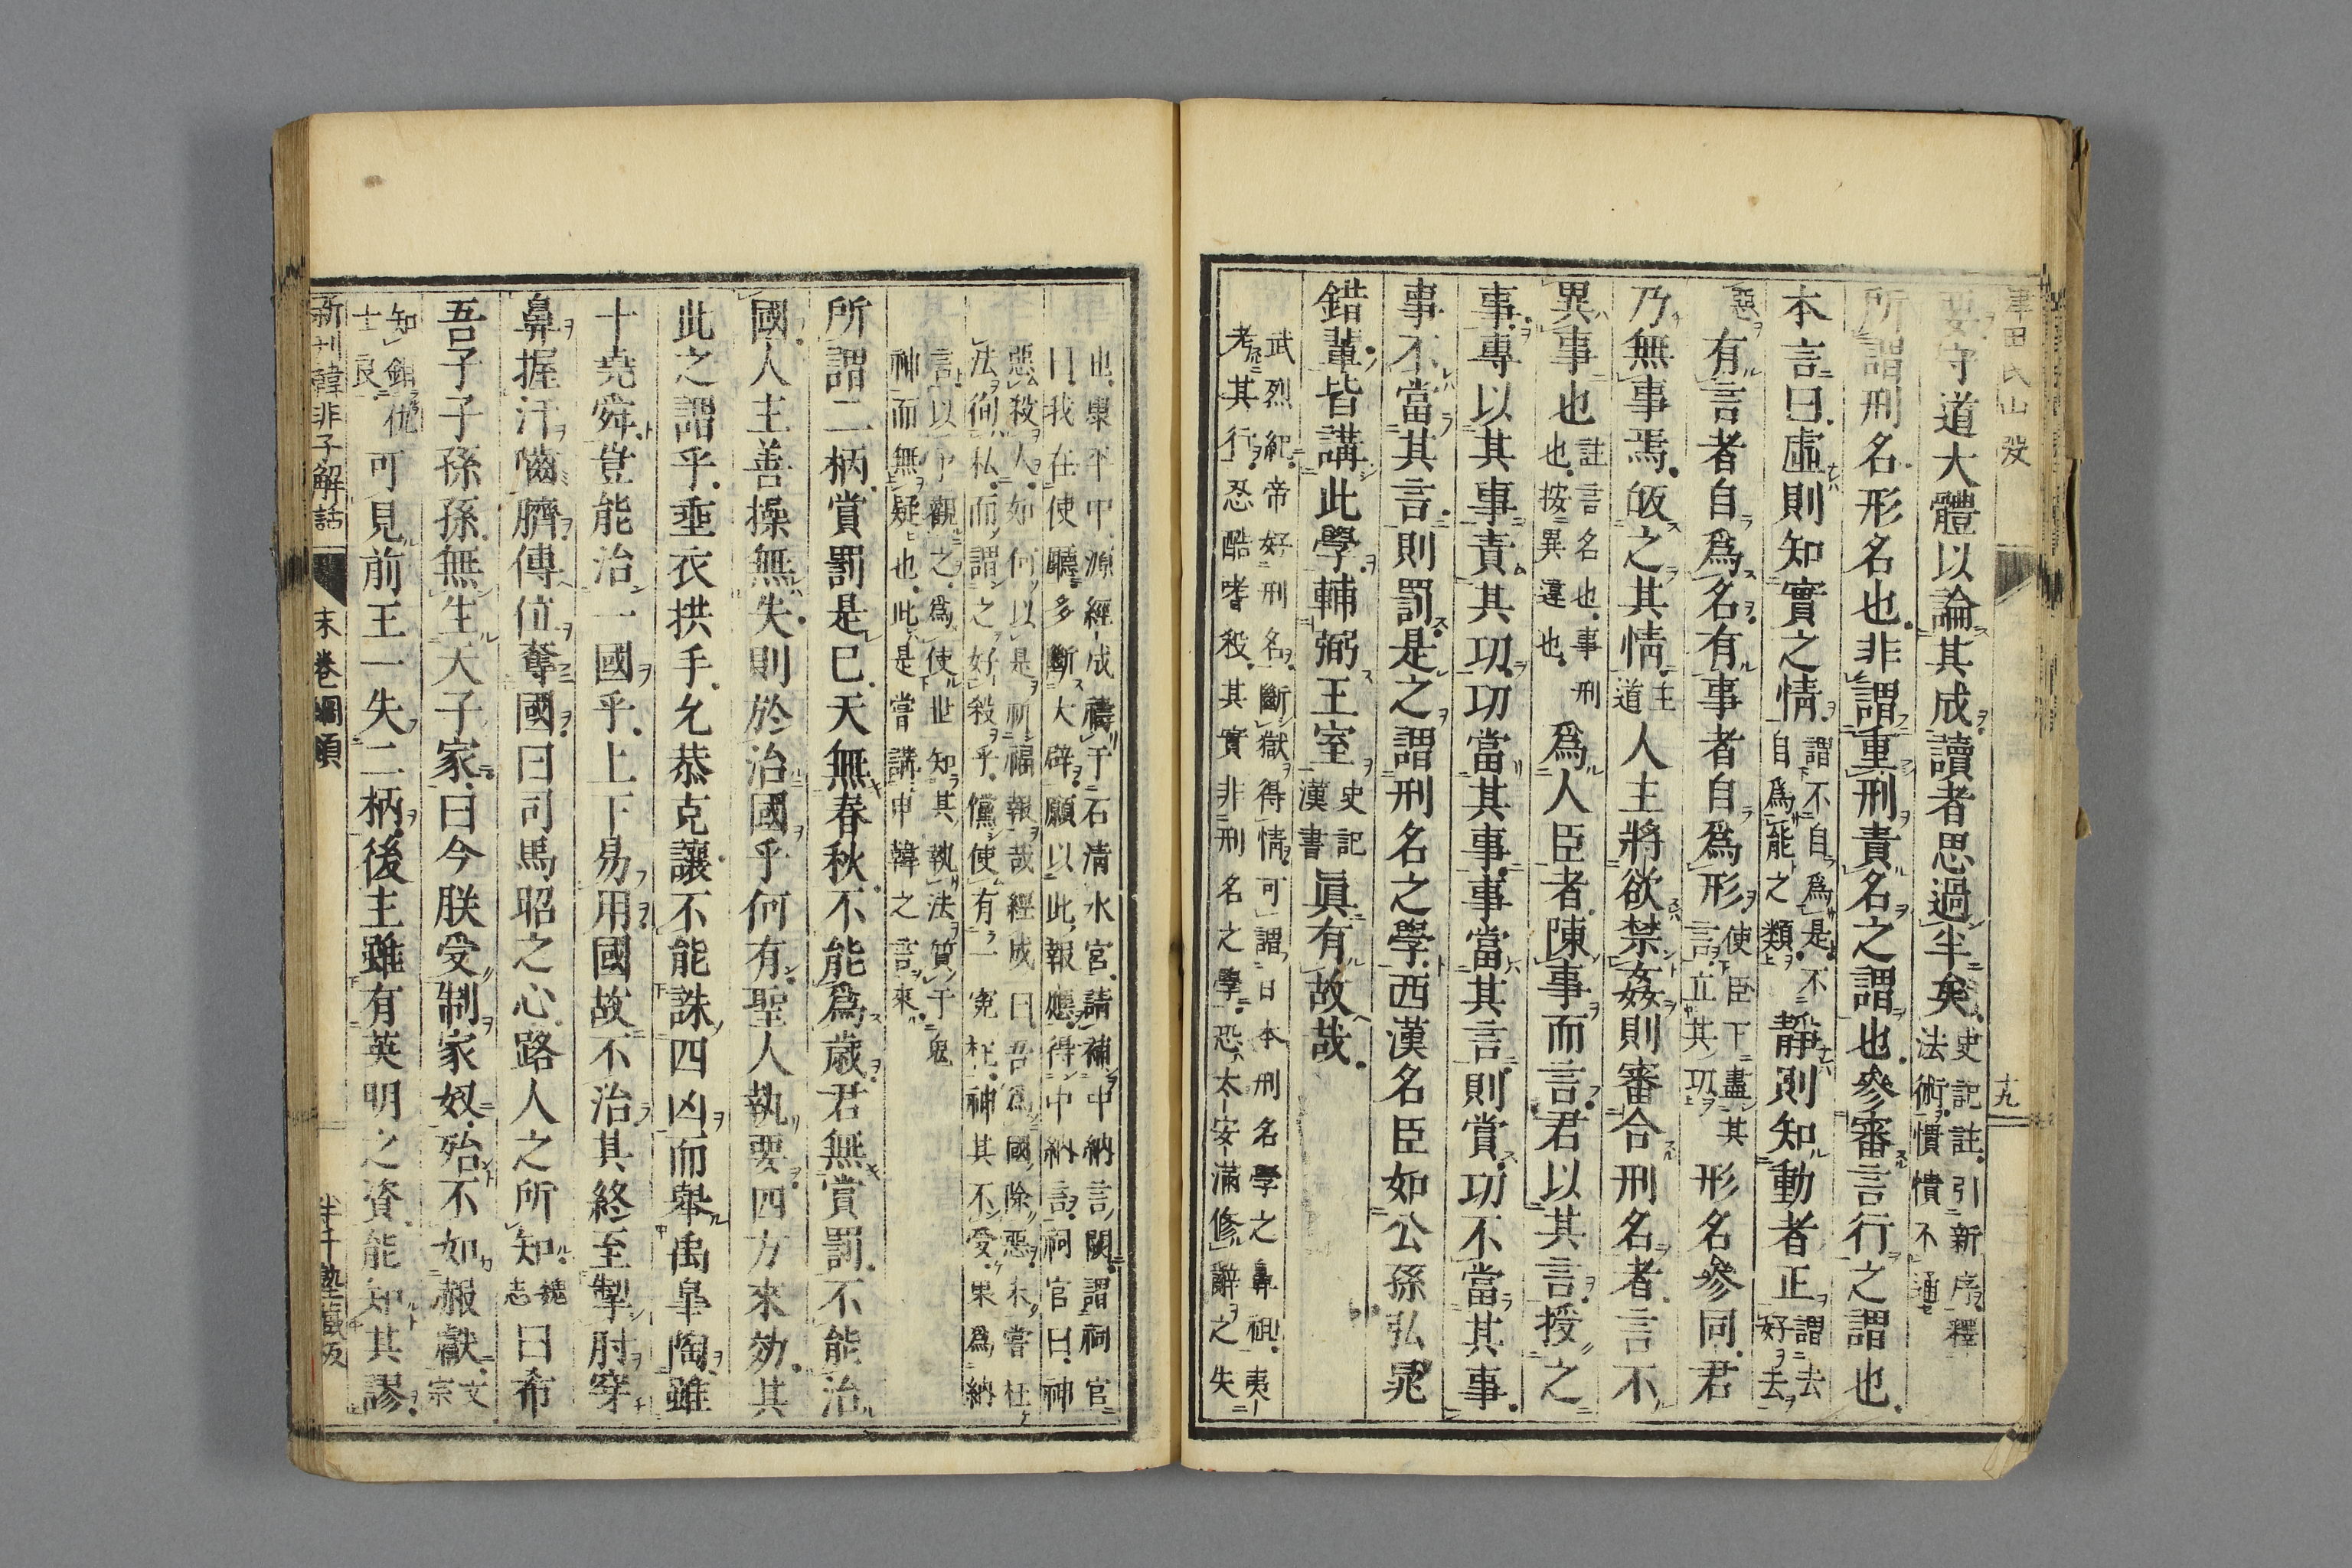 津田氏山 十九
要守道大體以論其成讀者思過半矣史記註引新序釋法術慣慣不通
所謂刑名形名也非謂重刑責名之謂也參審言行之謂也
本言曰虛則知實之情謂不自爲是不自爲能之類靜則知動者正謂去好去
惡有言者自爲名有事者自爲形使臣下盡其言立其功形名參同君
乃無事焉皈之其情主道人主將欲禁姦則審合刑名者言不
異事也註言名也事刑也按異違也爲人臣者陳事而言君以其言授之
事專以其事責其功功當其事事當其言則賞功不當其事
事不當其言則罰是之謂刑名之學西漢名臣如公孫弘晁
錯輩皆講此學輔弼王室史記漢書眞有故哉
武烈紀帝好刑名斷獄得情可謂日本刑名學之鼻祖夷
考其行忍酷嗜殺其實非刑名之學恐太安滿修辭之失
也康平中源經成禱于石清水宮請補中納言闕謂祠官
曰我在使廳多斷大辟願以此報應得中納言祠官曰神
惡殺人如何以是祈福報哉經成曰吾爲國除惡未嘗枉
法徇私而謂之好殺乎儻使有一寃枉神其不受果爲納
言以今觀之爲使世知其執法質于鬼
神而無疑也此是嘗講申韓之言來
所謂二柄賞罰是已天無春秋不能爲歲君無賞罰不能治
國人主善操無失則於治國乎何有聖人執要四方來効其
此之謂乎垂衣拱手允恭克讓不能誅四凶而舉禹皐陶雖
十堯舜豈能治一國乎上下易用國故不治其終至掣肘穿
鼻握汗噬臍傳位奪國曰司馬昭之心路人之所知魏志曰希
吾子子孫孫無生天子家曰今朕受制家奴殆不如赧獻文宗
知錯仇士良可見前王一失二柄後主雖有英明之資能知其謬
新刊韓非子解詁 末卷綱領 半千塾藏板